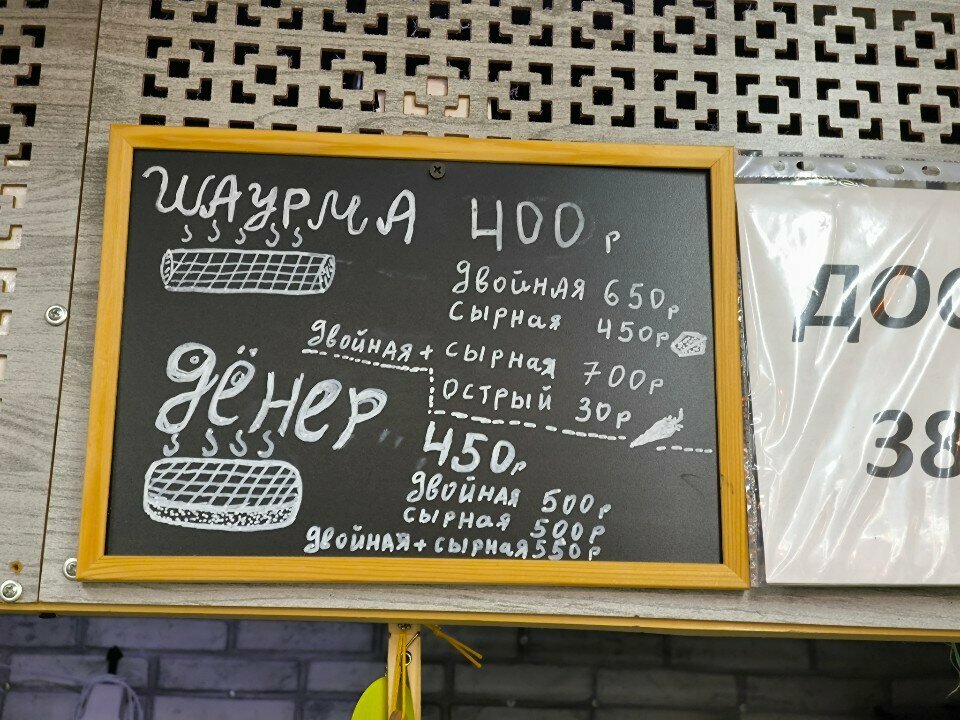 ШАУРМА 400р
двойная 650р
сырная 450р
двойная + сырная 700р
острый 30р
дёнер 450р
двойная 500р
сырная 500р
двойная + сырная 550р
ДОС
38